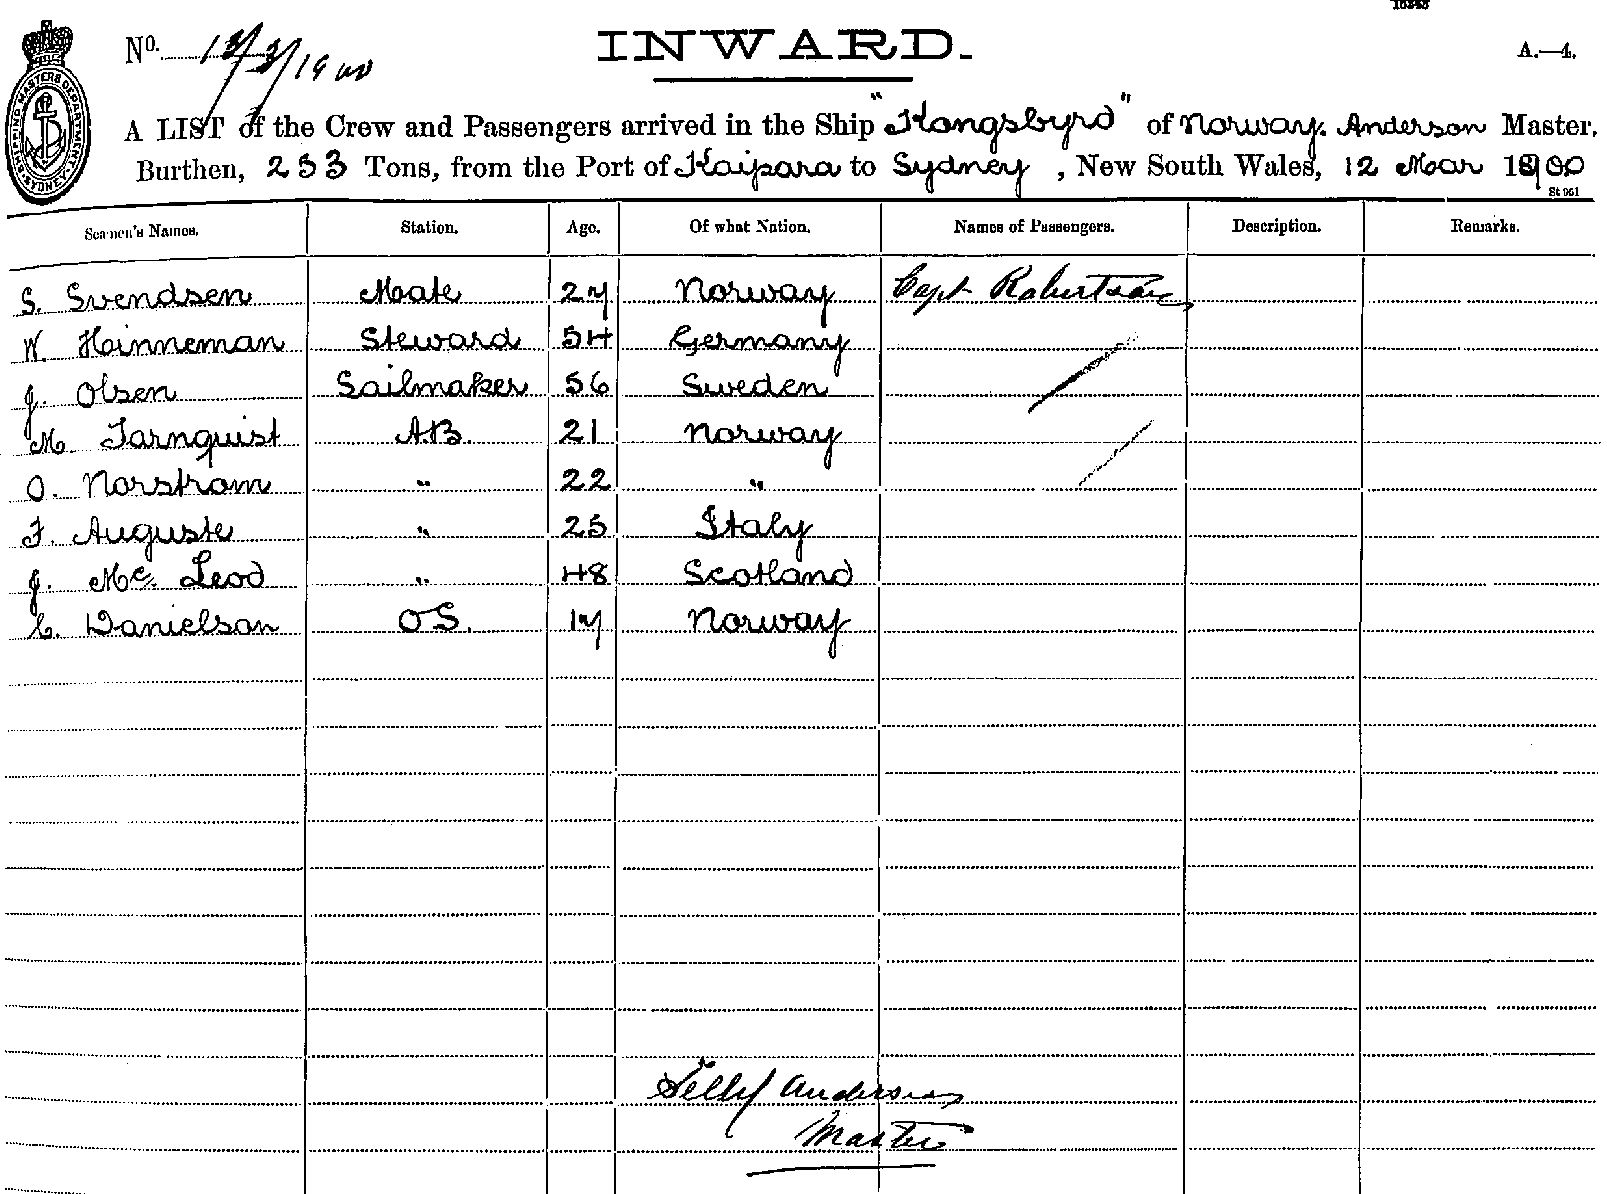 No. 13/3/1900 INWARD. A.—4.
A LIST of the Crew and Passengers arrived in the Ship "Kongsbyrd" of Norway. Anderson Master,
Burthen, 253 Tons, from the Port of Kaipara to Sydney, New South Wales, 12 Mar 1900
St 961
Seamen's Names. Station. Age. Of what Nation. Names of Passengers. Description. Remarks.
S. Svendsen Mate 27 Norway Capt Robertson
W. Hinneman Steward 54 Germany
J. Olsen Sailmaker 56 Sweden
M. Tarnquist AB. 21 Norway
O. Norstrom " 22 "
F. Auguste " 25 Italy
J. Mc Leod " 48 Scotland
C. Danielson OS. 17 Norway
Anderson
Master
SHIPPING MASTERS DEPARTMENT SYDNEY